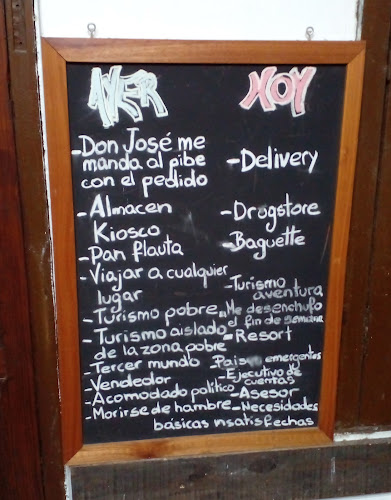 AYER HOY
-Don José me
manda al pibe -Delivery
con el pedido
-Almacen -Drogstore
Kiosco
-Pan flauta -Baguette
-Viajar a cualquier -Turismo
lugar aventura
-Turismo pobre -Me desenchufo
el fin de semana
-Turismo aislado -Resort
de la zona pobre
-Tercer mundo -Paises emergentes
-Vendedor -Ejecutivo de
cuentas
-Acomodado político -Asesor
-Morirse de hambre -Necesidades
básicas insatisfechas